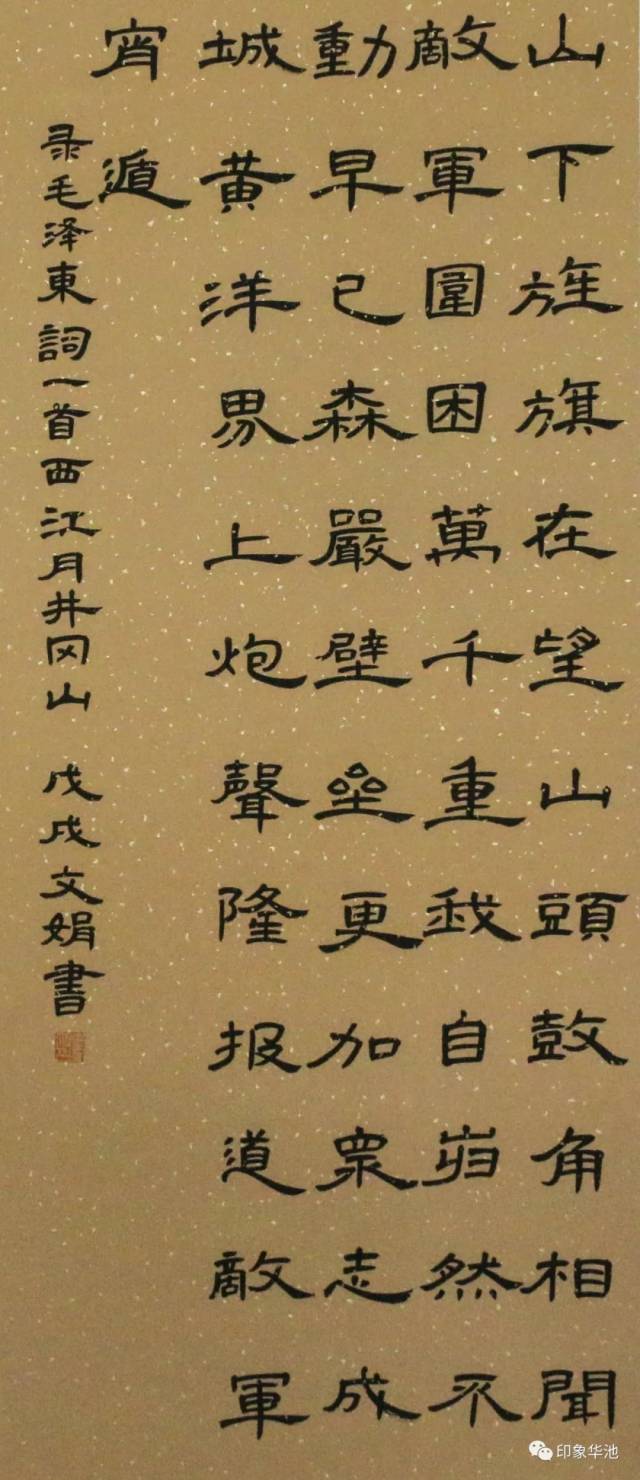 山下旌旗在望山頭鼓角相聞
敵軍圍困萬千重我自巋然不
動早已森嚴壁壘更加眾志成
城黄洋界上炮聲隆报道敵軍
宵遁
录毛泽東詞一首西江月井冈山 戊戌文娟書
印象华池